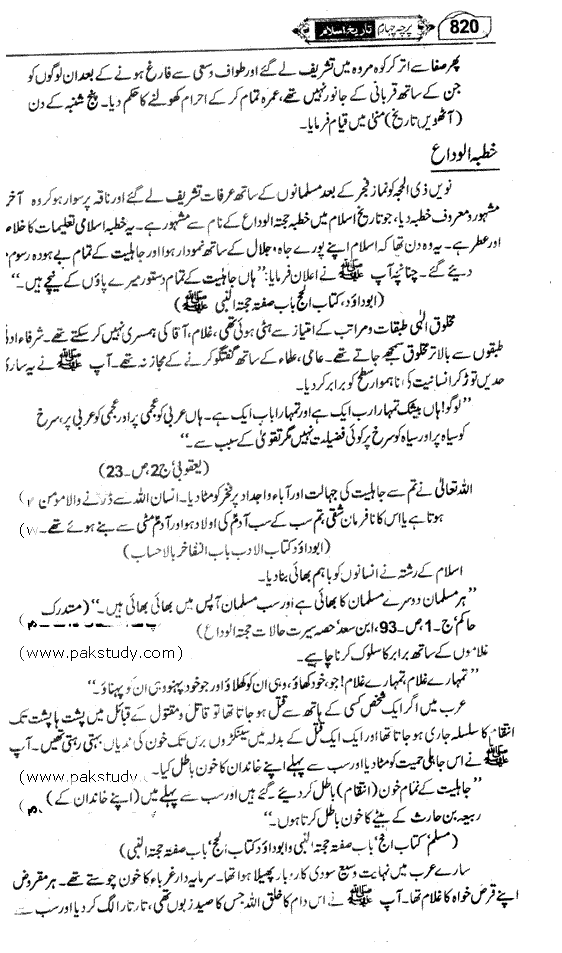 820 پرچہ چہارم تاریخ اسلام
پھر صفا سے اتر کر کوہ مروہ میں تشریف لے گئے اور طواف و سعی سے فارغ ہونے کے بعد ان لوگوں کو
جن کے ساتھ قربانی کے جانور نہیں تھے، عمرہ تمام کر کے احرام کھولنے کا حکم دیا۔ پنج شنبہ کے دن
(آٹھویں تاریخ) منٰی میں قیام فرمایا۔
خطبہ الوداع
نویں ذی الحجہ کو نماز فجر کے بعد مسلمانوں کے ساتھ عرفات تشریف لے گئے اور ناقہ پر سوار ہو کر وہ آخر
مشہور و معروف خطبہ دیا، جو تاریخ اسلام میں خطبہ حجتہ الوداع کے نام سے مشہور ہے۔ یہ خطبہ اسلامی تعلیمات کا خلاص
اور عطر ہے۔ یہ وہ دن تھا کہ اسلام اپنے پورے جاہ و جلال کے ساتھ نمودار ہوا اور جاہلیت کے تمام بے ہودہ رسوم
دیئے گئے۔ چنانچہ آپ ﷺ نے اعلان فرمایا: ”ہاں جاہلیت کے تمام دستور میرے پاؤں کے نیچے ہیں۔“
(ابوداؤد، کتاب الحج باب صفتہ حجتہ النبی ﷺ)
مخلوق الٰہی طبقات و مراتب کے امتیاز سے بٹی ہوئی تھی، غلام، آقا کی ہمسری نہیں کر سکتے تھے۔ شرفاء ادنٰ
طبقوں سے بالاتر مخلوق سمجھے جاتے تھے۔ عامی، علماء کے ساتھ گفتگو کرنے کے مجاز نہ تھے۔ آپ ﷺ نے یہ ساری
حدیں توڑ کر انسانیت کی ناہموار سطح کو برابر کر دیا۔
”لوگو! ہاں بیشک تمہارا رب ایک ہے اور تمہارا باپ ایک ہے۔ ہاں عربی کو عجمی پر اور عجمی کو عربی پر، سرخ
کو سیاہ پر اور سیاہ کو سرخ پر کوئی فضیلت نہیں مگر تقویٰ کے سبب سے۔“
(یعقوبی‘ ج 2‘ ص۔ 23)
اللہ تعالٰی نے تم سے جاہلیت کی جہالت اور آباء و اجداد پر فخر کو مٹا دیا۔ انسان اللہ سے ڈرنے والا مومن
ہوتا ہے یا اس کا نافرمان شقی، تم سب کے سب آدمؑ کی اولاد ہو اور آدمؑ مٹی سے بنے ہوئے تھے۔ (w
(ابوداؤد کتاب الادب باب التفاخر بالاحساب)
اسلام کے رشتہ نے انسانوں کو باہم بھائی بنا دیا۔
”ہر مسلمان دوسرے مسلمان کا بھائی ہے اور سب مسلمان آپس میں بھائی بھائی ہیں۔“ (مستدرک
حاکم‘ ج۔ 1، ص۔ 93، ابن سعد‘ حصہ سیرت حالات حجتہ الوداع)
غلاموں کے ساتھ برابر کا سلوک کرنا چاہیے۔ (www.pakstudy.com)
”تمہارے غلام، تمہارے غلام! جو، خود کھاؤ، وہی ان کو کھلاؤ اور جو خود پہنو وہی ان کو پہناؤ۔“
عرب میں اگر ایک شخص کسی کے ہاتھ سے قتل ہو جاتا تھا تو قاتل و مقتول کے قبائل میں پشت ہا پشت تک
انتقام کا سلسلہ جاری ہو جاتا تھا اور ایک ایک قتل کے بدلہ میں سینکڑوں برس تک خون کی ندیاں بہتی رہتی تھیں۔ آپ
ﷺ نے اس جاہلی حمیت کو مٹا دیا اور سب سے پہلے اپنے خاندان کا خون باطل کیا۔ (www.pakstudy.
”جاہلیت کے تمام خون (انتقام) باطل کر دیئے گئے ہیں اور سب سے پہلے میں (اپنے خاندان کے)
ربیعہ بن حارث کے بیٹے کا خون باطل کرتا ہوں۔“
(مسلم‘ کتاب الحج‘ باب صفتہ حجتہ النبی و ابوداؤد کتاب الحج‘ باب صفتہ حجتہ النبی)
سارے عرب میں نہایت وسیع سودی کاروبار پھیلا ہوا تھا۔ سرمایہ دار غرباء کا خون چوستے تھے۔ ہر مقروض
اپنے قرض خواہ کا غلام تھا۔ آپ ﷺ نے اس دام کا خلق اللہ جس کا صید زبوں تھی، تار تار الگ کر دیا اور سب سے